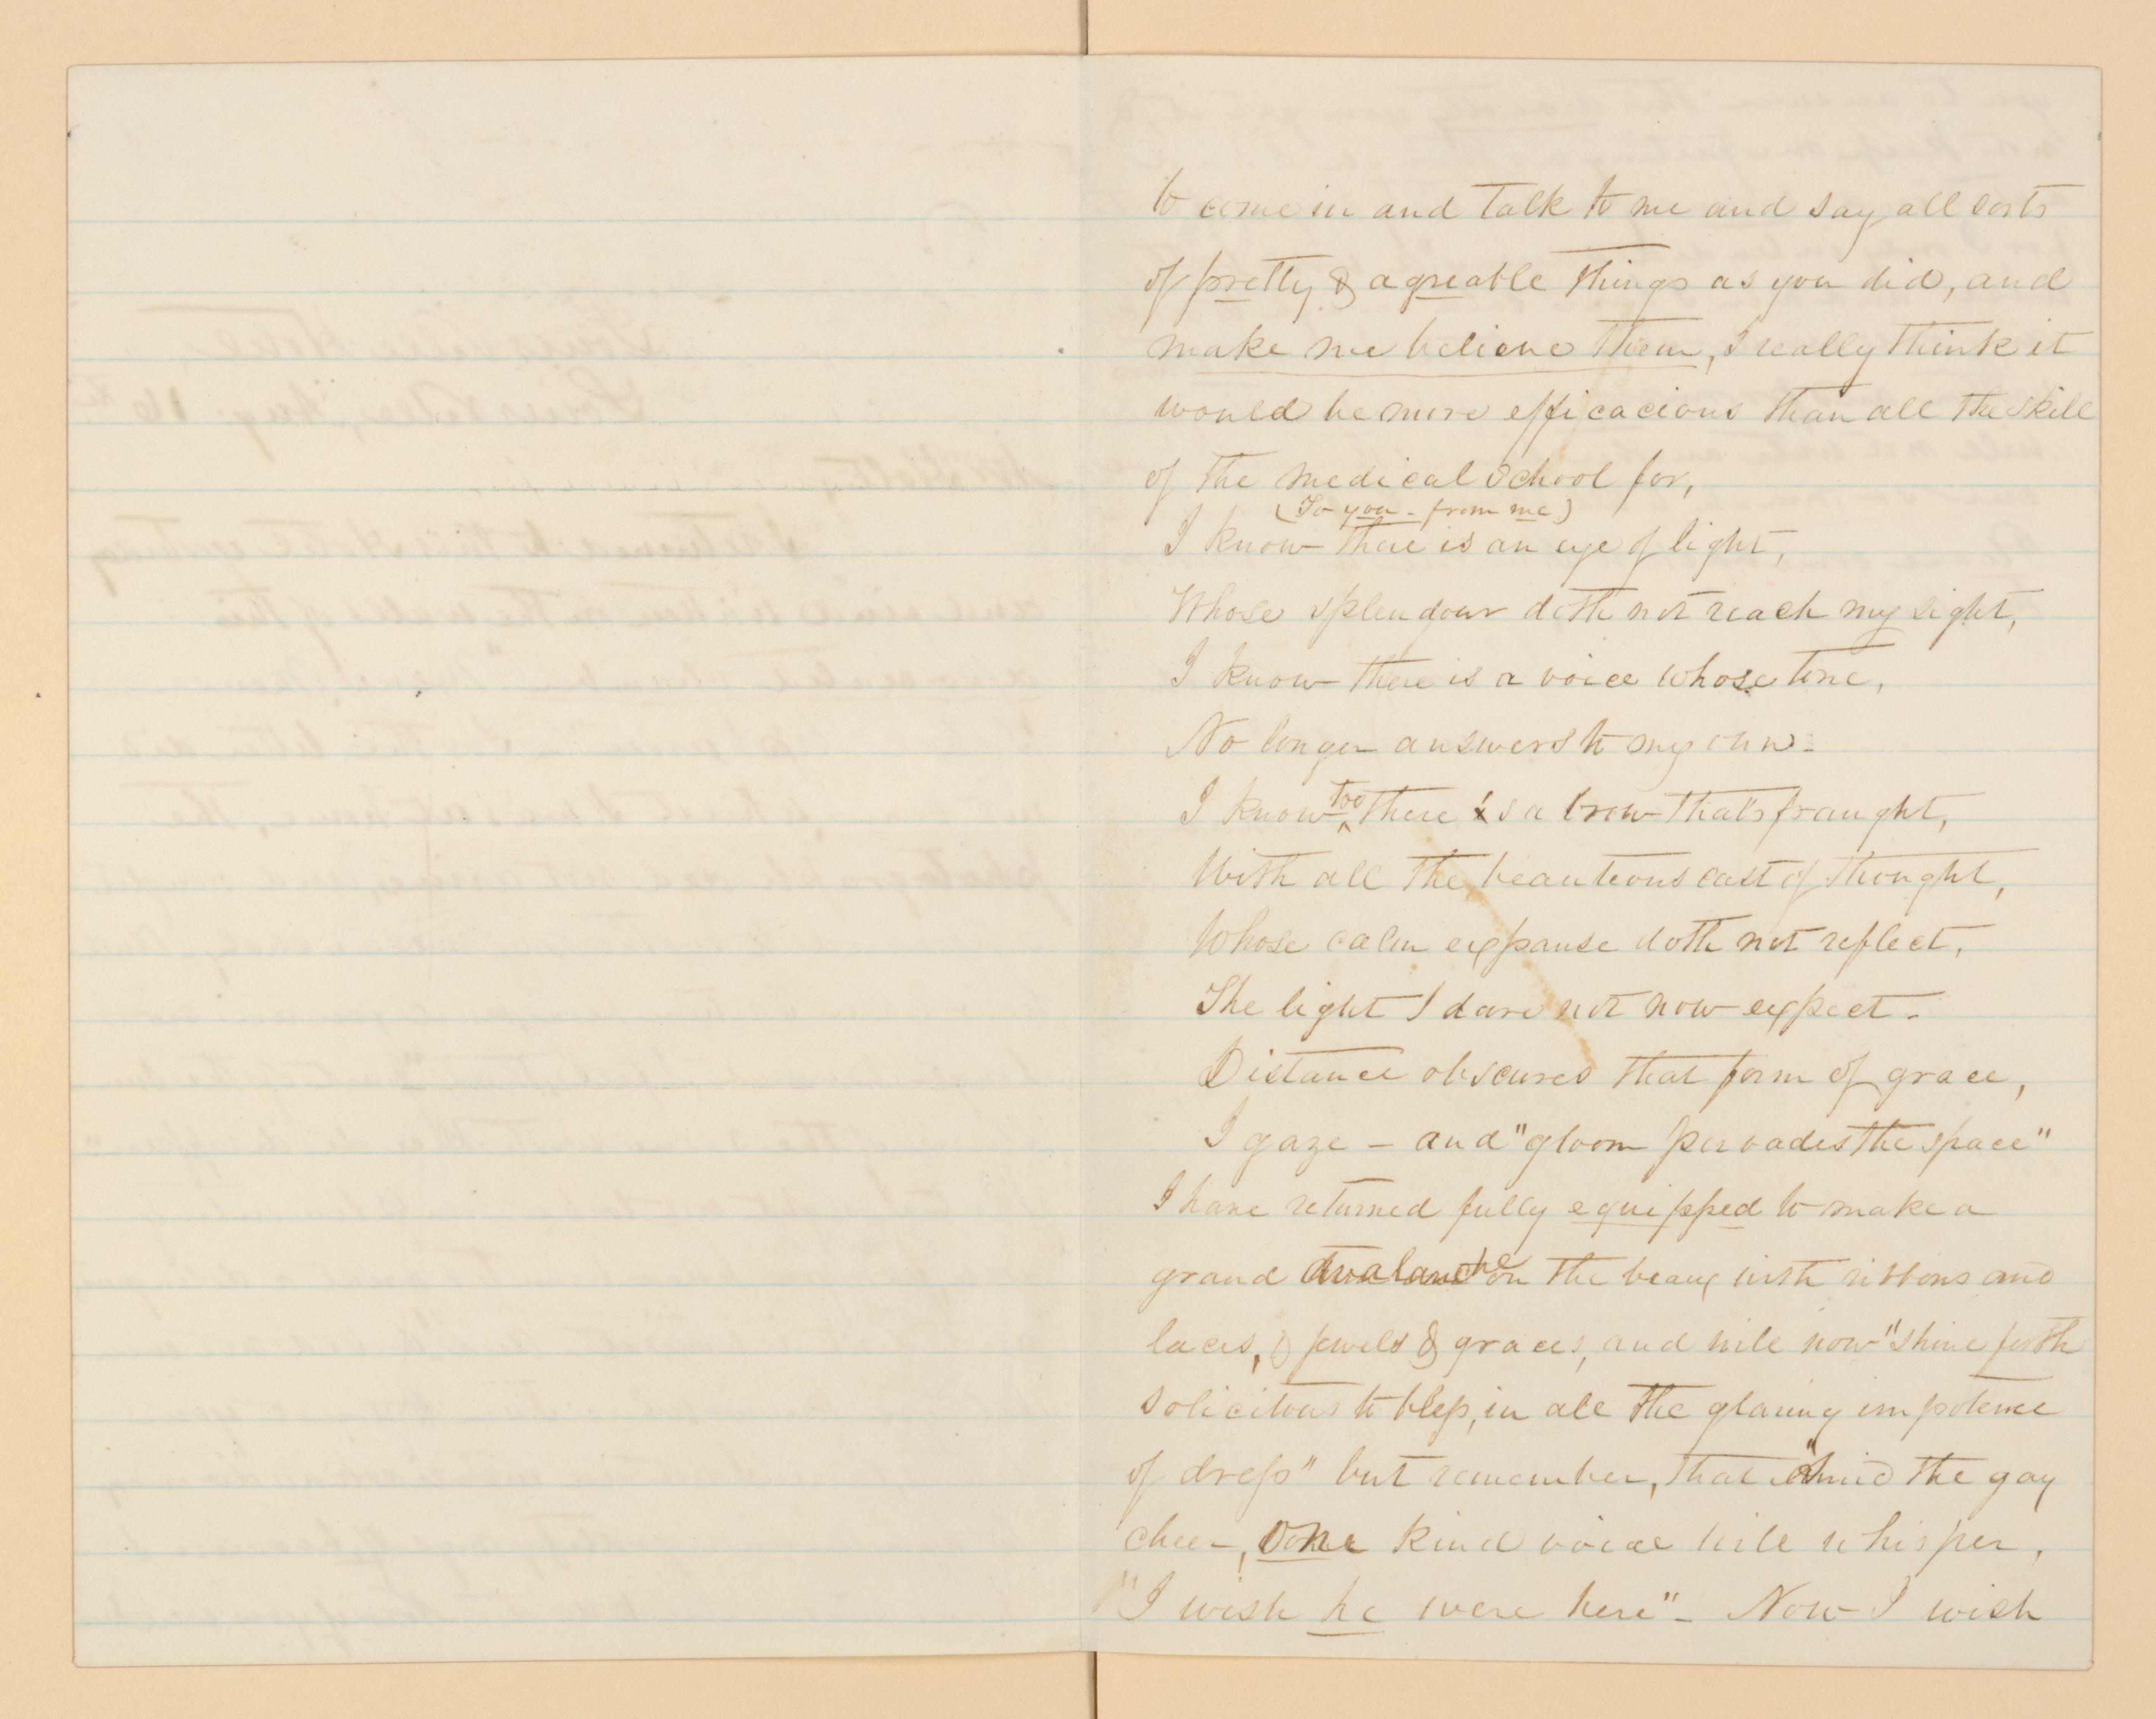 to come in and talk to me and say all sorts
of pretty & agreable things as you did, and
make me believe them, I really think it
would be more efficacious than all the skill
of the medical school for,
(To you - from me)
I know there is an eye of light,
Whose splendour doth not reach my sight,
I know there is a voice whose tone,
No longer answers to my own -
I know too there is a brow that's fraught,
With all the beauteous cast of thought,
Whose calm expanse doth not reflect,
The light I dare not now expect -
Distance obscures that form of grace,
I gaze - and "gloom pervades the space"
I have returned fully equipped to make a
grand avalanche on the beaux with ribbons and
laces, & jewels & graces, and will now "shine forth
solicitous to bless, in all the glaring impotence
of dress" but remember, that "amid the gay
cheer, One kind voice will whisper,
"I wish he were here" - Now I wish